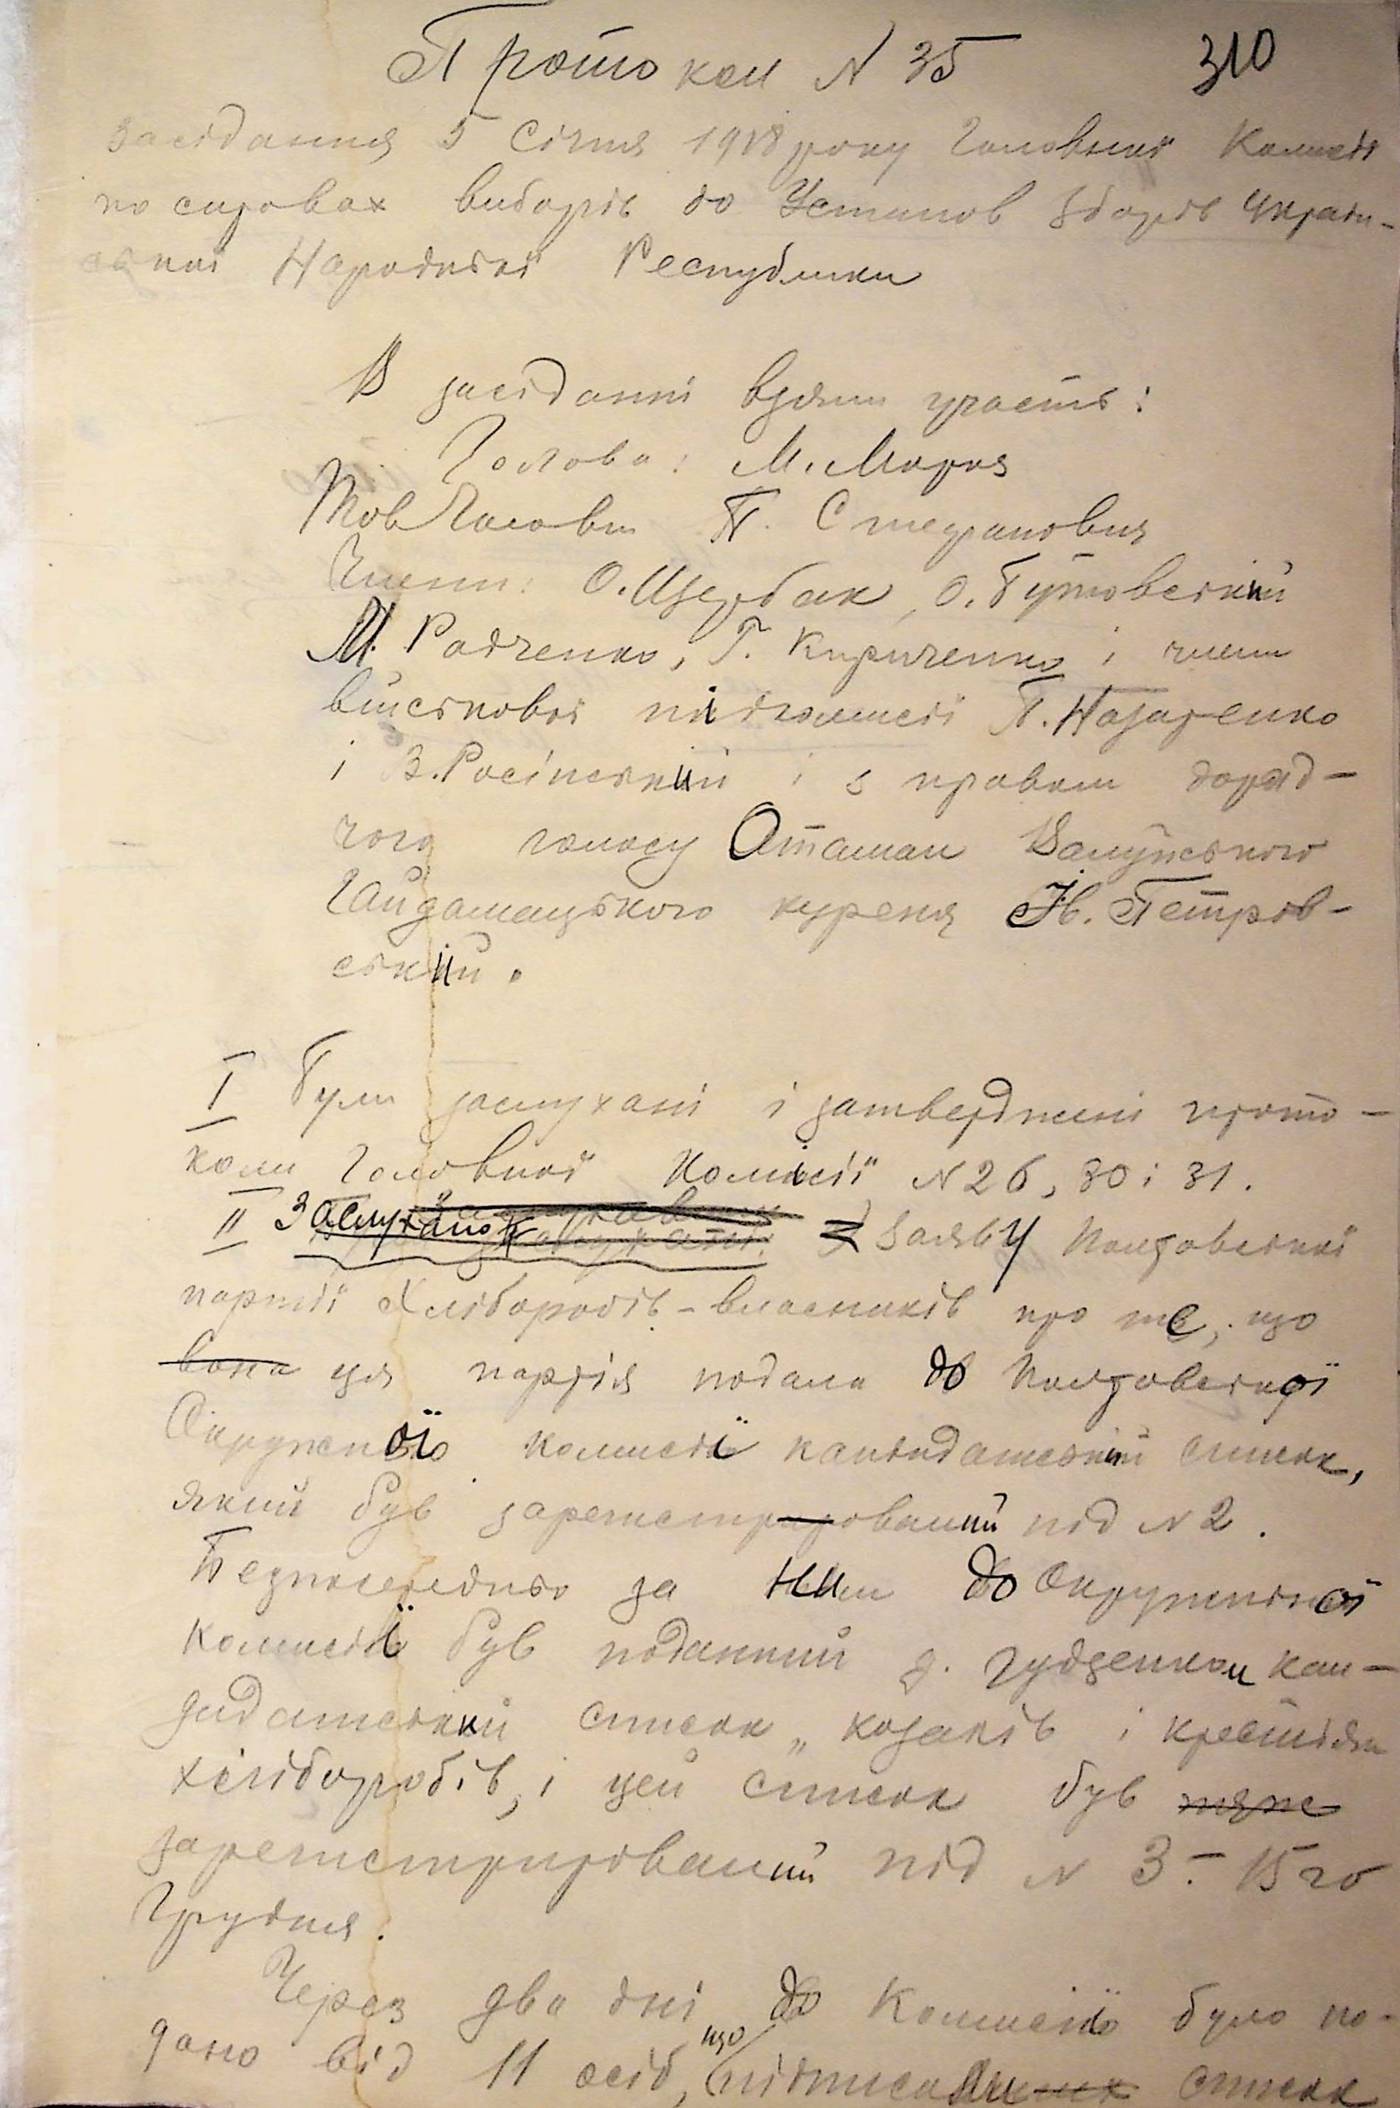 Протокол N 35 310
засідання 5 Січня 1918 року Головної Комісії
по справах виборів до Установ. Зборів Україн-
ської Народньої Республики
В засіданні взяли участь:
Голова: М. Мороз
Тов Голови П. Стефанович
Члени: О. Щербак, О. Бутовський
М. Радченко, Г. Кириченко і члени
військової підкомісії П. Назаренко
і В. Росінський і з правом дорад-
чого голосу Отаман
Гайдамацького куреня Ів. Петров-
ський.
I Були заслухані і затверджені прото-
коли Головної Комісії N 26, 30 і 31.
II Заслухано заяву Полтавської
партії Хліборобів-власників про те, що
вона ця партія подала до Полтавської
Окружної комісії кандидатський список,
який був зарегистрірований під N 2.
Безпосередньо за ним до Окружньої
комісії був поданий д. Гудзенком кан-
дидатський список „козаків і крестіян
хліборобів, і цей список був теж
зарегистрірований під N 3. – 15го
Грудня.
Через два дні до Комісії було по-
дано від 11 осіб, що підписали список